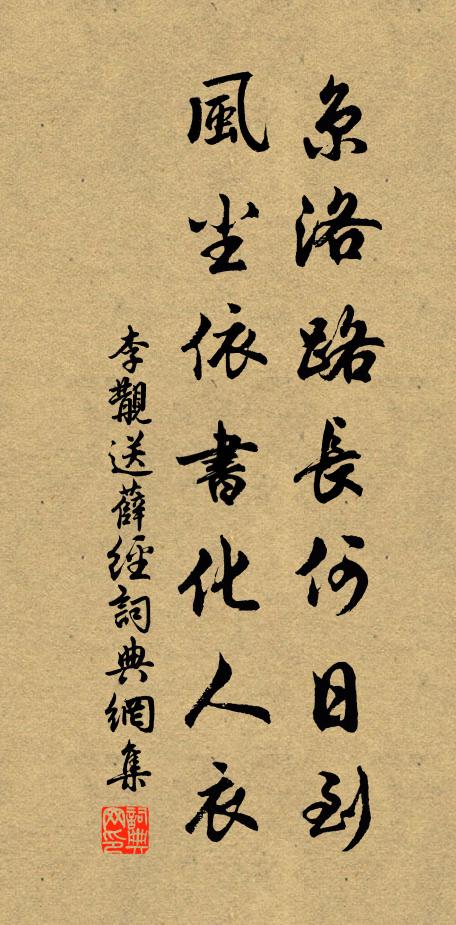 京洛路長何日到
風尘依書化人衣
李覯送薛經詞典網集
詞典网印